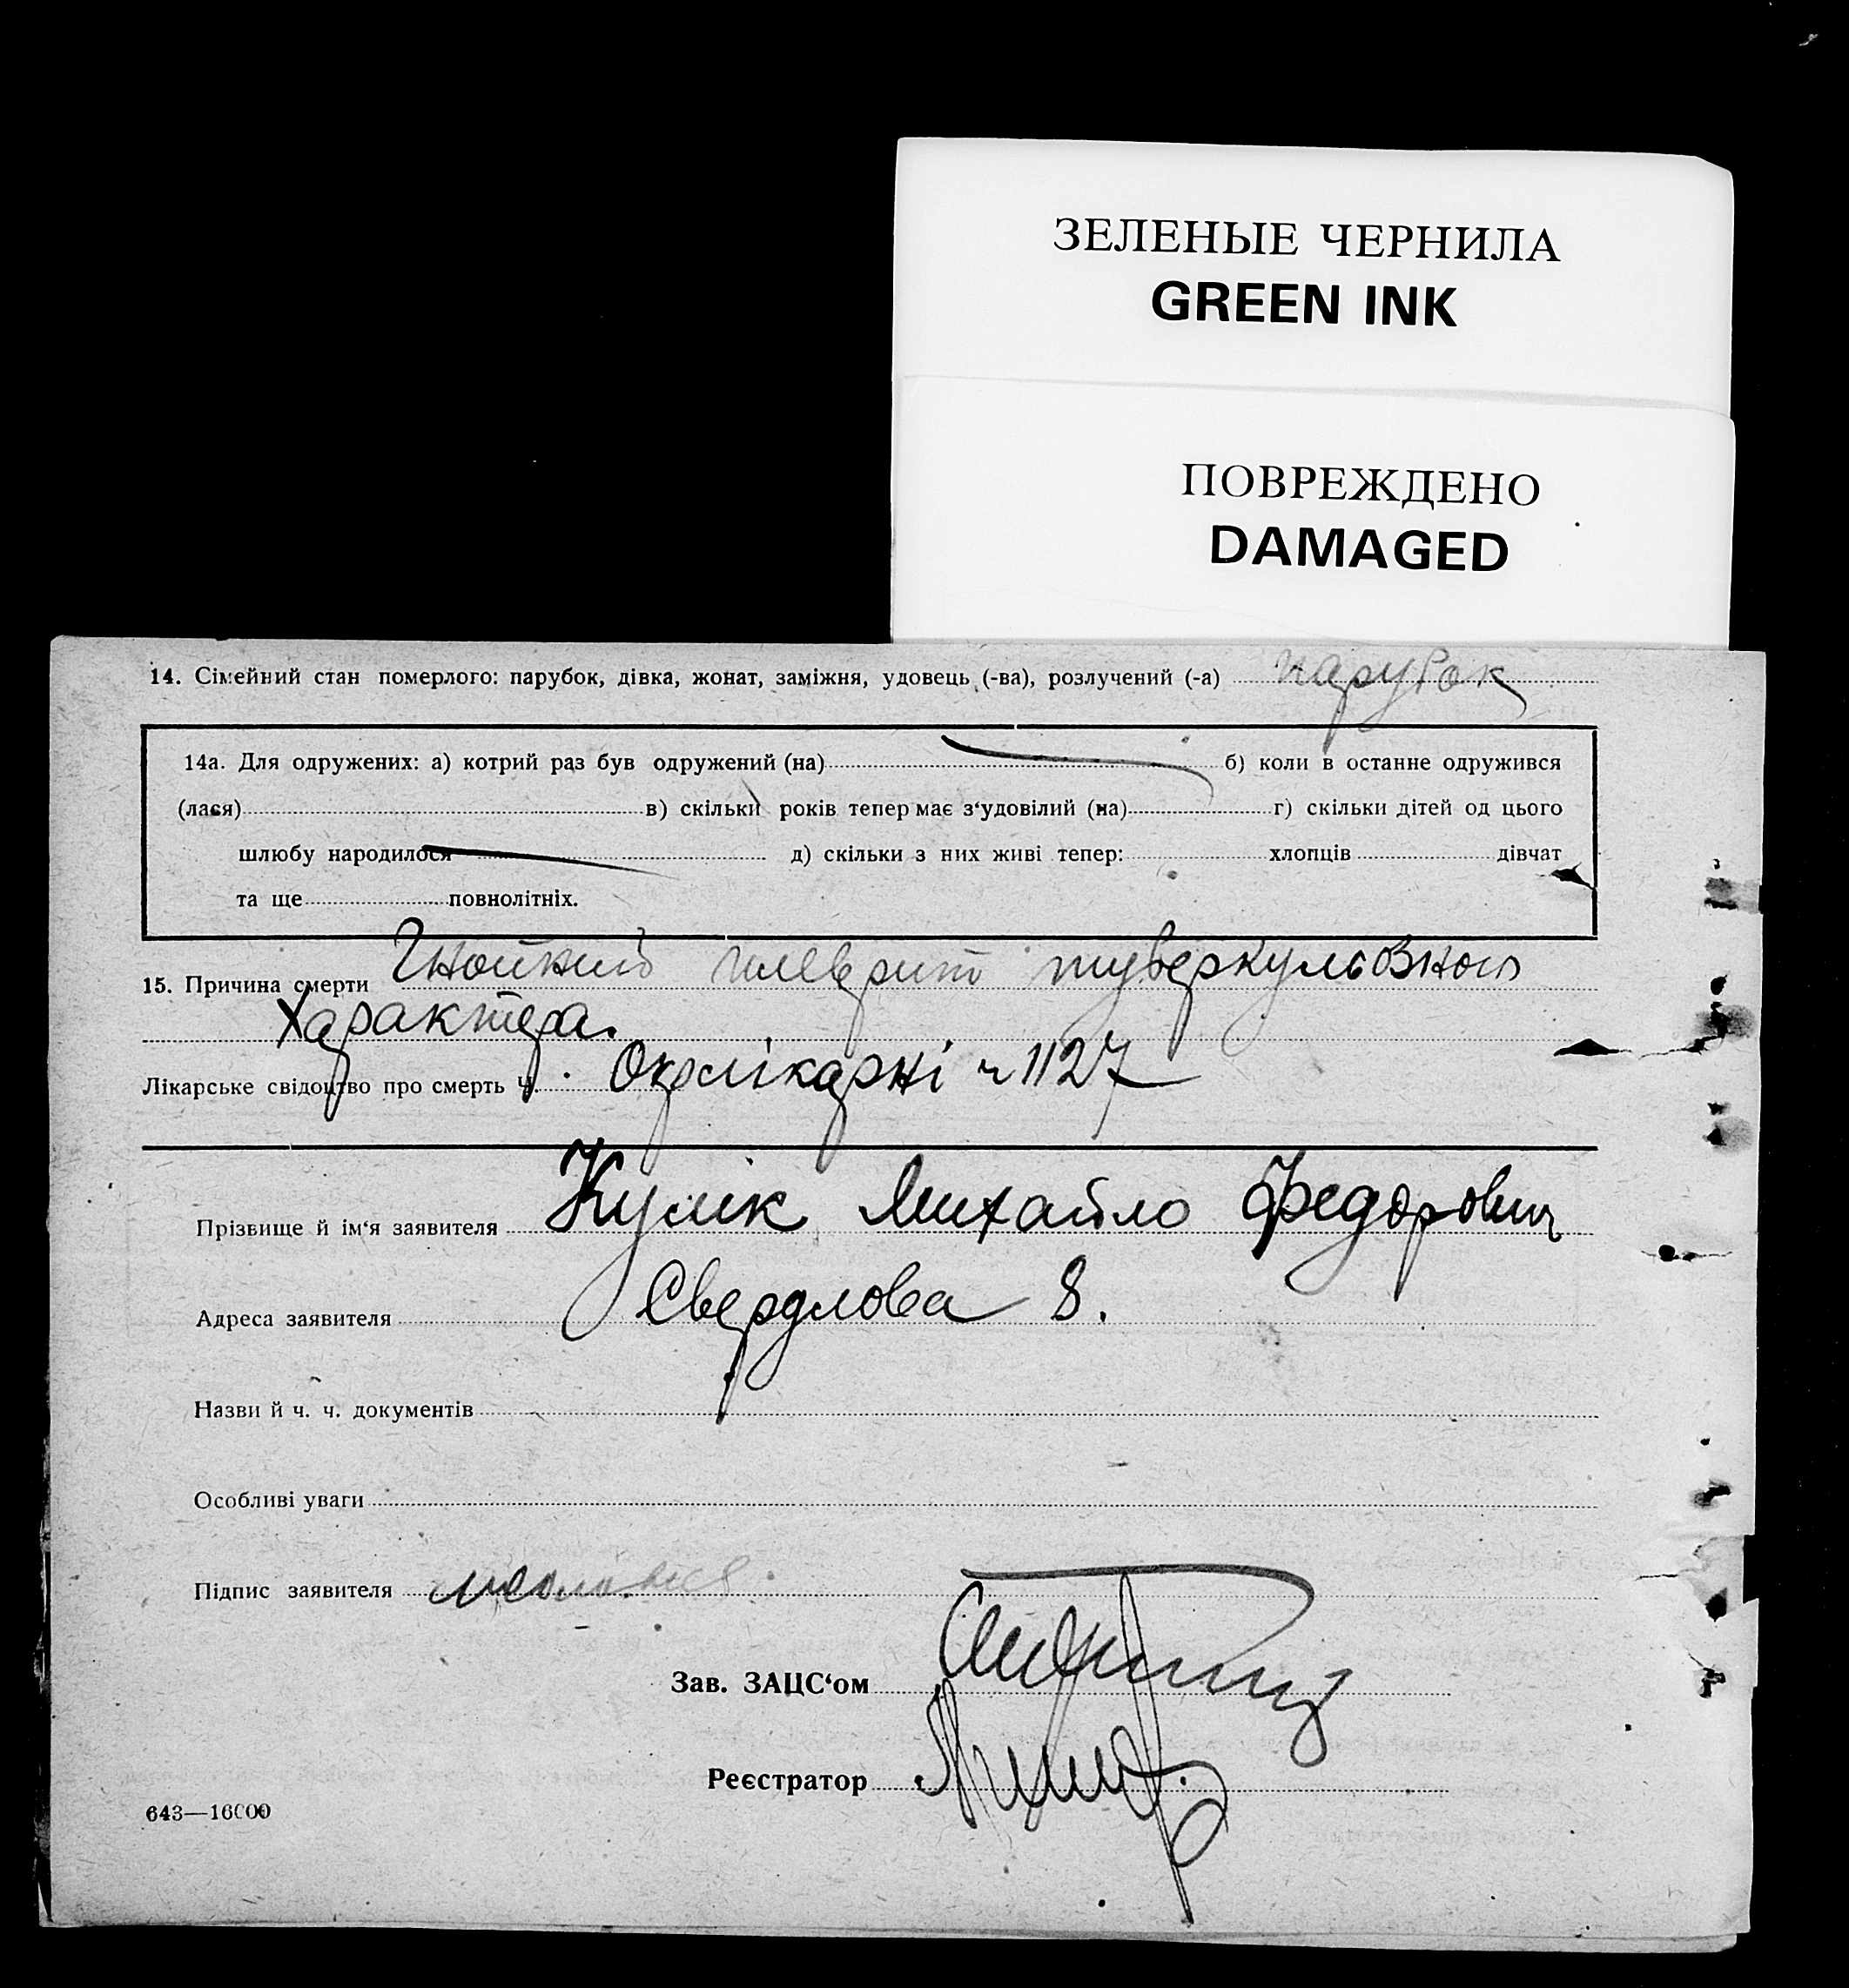 ЗЕЛЕНЫЕ ЧЕРНИЛА
GREEN INK
ПОВРЕЖДЕНО
DAMAGED
14. Сімейний стан померлого: парубок, дівка, жонат, заміжня, удовець (-ва), розлучений (-а) парубок
14а. Для одружених: а) котрий раз був одружений (на) б) коли в останнє одружився
(лася) в) скільки років тепер має з‘удовілий (на) г) скільки дітей од цього
шлюбу народилося д) скільки з них живі тепер: хлопців дівчат
та ще повнолітніх.
15. Причина смерти Гнойний плеврит туберкульозного
характера.
Лікарське свідоцтво про смерть ч. Окрлікарні ч 1127
Прізвище й ім‘я заявителя Кулік Михайло Федорович
Адреса заявителя Свердлова 8.
Назви й ч. ч. документів
Особливі уваги
Підпис заявителя
Зав. ЗАЦС‘ом
Реєстратор
643—16000